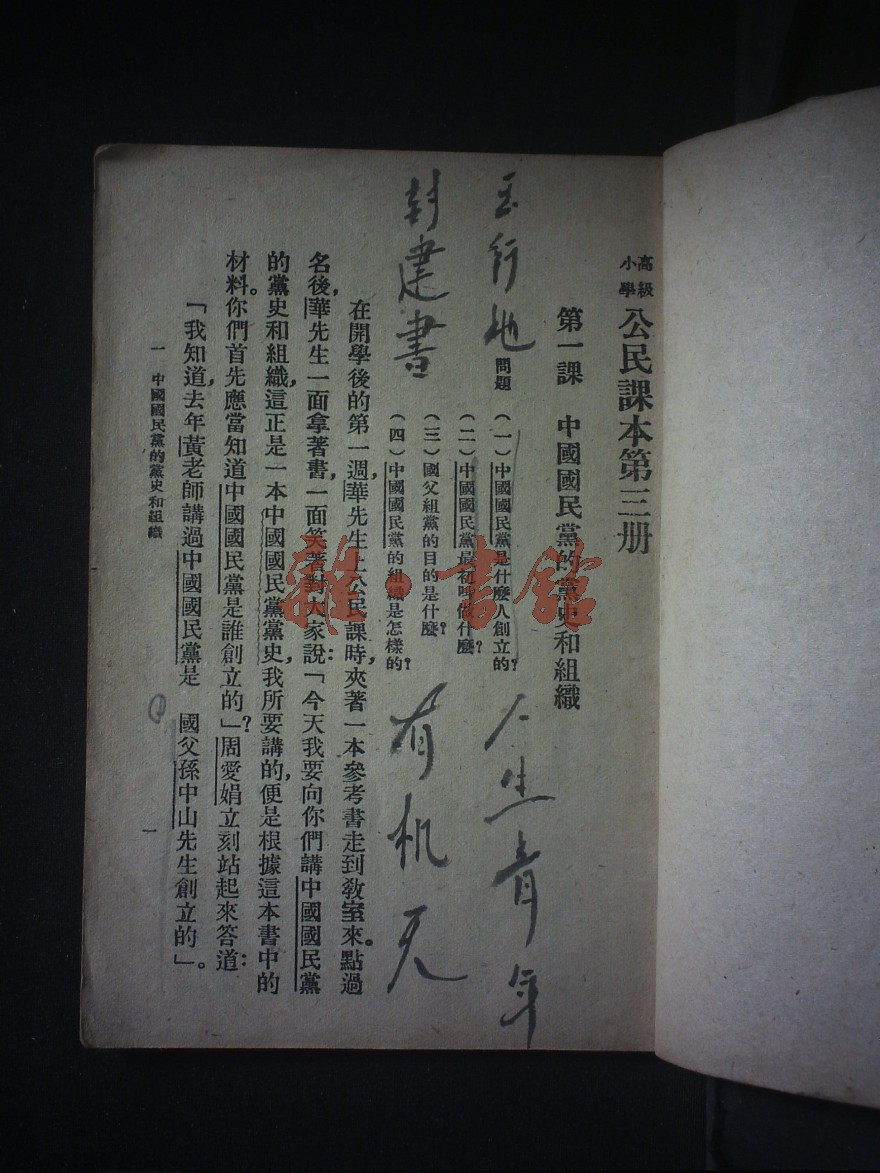 高級小學 公民課本第三册
第一課 中國國民黨的黨史和組織
問題 (一)中國國民黨是什麼人創立的?
(二)中國國民黨最初叫做什麼?
(三)國父組黨的目的是什麼?
(四)中國國民黨的組織是怎樣的?
在開學後的第一週,華先生上公民課時,夾著一本參考書走到敎室來。點過
名後,華先生一面拿著書,一面笑著對大家說:「今天我要向你們講中國國民黨
的黨史和組織,這正是一本中國國民黨黨史,我所要講的,便是根據這本書中的
材料。你們首先應當知道中國國民黨是誰創立的」?周愛娟立刻站起來答道:
「我知道,去年黃老師講過中國國民黨是 國父孫中山先生創立的」。
一 中國國民黨的黨史和組織
一
行地
人生青年
封建書
有机天
雜·書館